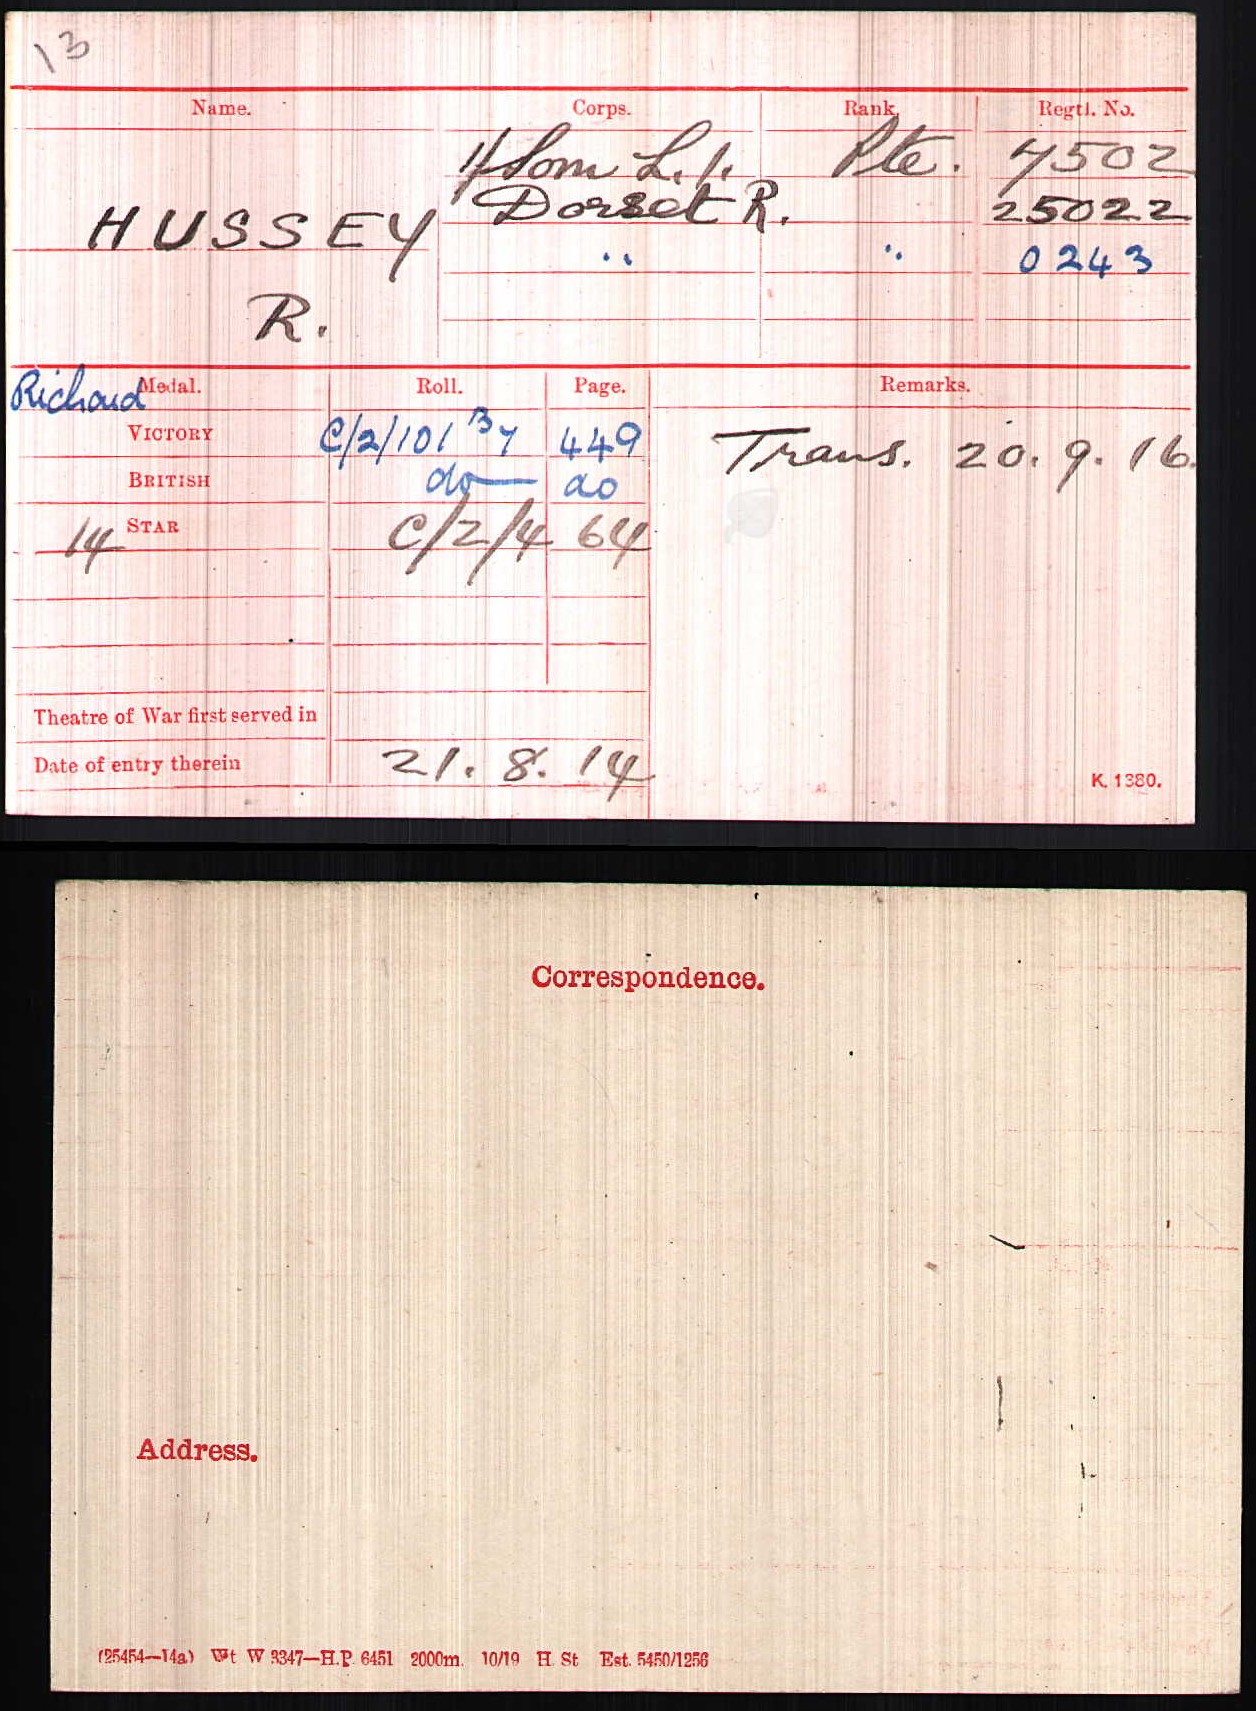 13
Name. Corps. Rank. Regtl. No.
1/Som L.I. Pte. 7502
HUSSEY Dorset R. 25022
" " 0243
R.
Richard
Medal. Roll. Page. Remarks.
VICTORY C/2/101 B7 449 Trans. 20.9.16.
BRITISH do do
14 STAR C/2/4 64
Theatre of War first served in
Date of entry therein 21.8.14
K. 1380.
Correspondence.
Address.
(25454—14a) Wt W 3347—H.P. 6451 2000m. 10/19 H. St Est. 5450/1256